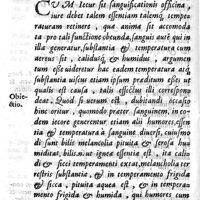 CVM Iecur sit sanguificationis officina,
iure debet talem essentiam talemq; tempe-
raturam retinere, qua anima sit accommoda
ta pro tali functione obeunda, sanguis autẽ qui in
illa generatur, substantia & temperatura cum
aerus sit, calidusq; & humidus, argumen
tum esse uideretur hac eadem temperatura atq;
substantia uisceris etiam ipsum præditum esse: ut
qualis est causa, talis effectus illi correspon
deat. Quod si uerum est, dubitandi occasio
hinc orietur, quomodo præter sanguinem, in eo-
dem iecore generentur etiam alij humores, essentia
& temperatura à sanguine diuersi, cuiusmo
di sunt bilis melancholia pituita & serosa hu
miditas: bilis. n. igneæ essentia est, atq; calidi
& sicci temperamenti extat, melancholia ter
restris substantiæ, & in temperamento frigida
& sicca, pituita aquea est, & in tempera-
mento frigida & humida, qui humores cum
Obie-
ctio.